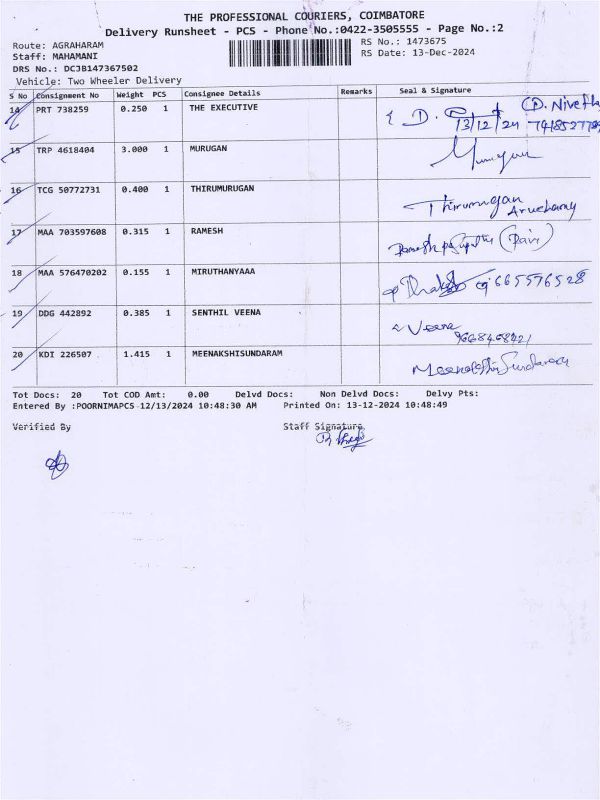 THE PROFESSIONAL COURIERS, COIMBATORE
Delivery Runsheet - PCS - Phone No.:0422-3505555 - Page No.:2
Route: AGRAHARAM
RS No.: 1473675
Staff: MAHAMANI
RS Date: 13-Dec-2024
DRS No.: DCJB147367502
Vehicle: Two Wheeler Delivery
S No Consignment No Weight PCS Consignee Details Remarks Seal & Signature
14 PRT 738259 0.250 1 THE EXECUTIVE D. 13/12/24
15 TRP 4618404 3.000 1 MURUGAN Murugan
16 TCG 50772731 0.400 1 THIRUMURUGAN Thirumurugan
17 MAA 703597608 0.315 1 RAMESH Ramesh
18 MAA 576470202 0.155 1 MIRUTHANYAAA
19 DDG 442892 0.385 1 SENTHIL VEENA Veena
20 KDI 226507 1.415 1 MEENAKSHISUNDARAM Meenakshi Sundaram
Tot Docs: 20 Tot COD Amt: 0.00 Delvd Docs: Non Delvd Docs: Delvy Pts:
Entered By :POORNIMAPCS-12/13/2024 10:48:30 AM Printed On: 13-12-2024 10:48:49
Verified By Staff Signature